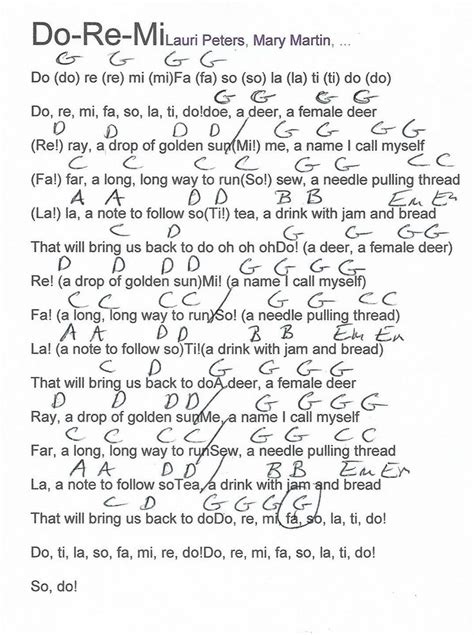 Do-Re-MiLauri Peters, Mary Martin, ...
G G G G
Do (do) re (re) mi (mi)Fa (fa) so (so) la (la) ti (ti) do (do)
G G G G
Do, re, mi, fa, so, la, ti, do!doe, a deer, a female deer
D D D D G G G G
(Re!) ray, a drop of golden sun(Mi!) me, a name I call myself
C C C C G G C C
(Fa!) far, a long, long way to run(So!) sew, a needle pulling thread
A A D D B B Em Em
(La!) la, a note to follow so(Ti!) tea, a drink with jam and bread
C D G G G G
That will bring us back to do oh oh ohDo! (a deer, a female deer)
D D D D G G G G
Re! (a drop of golden sun)Mi! (a name I call myself)
C C C C G G C C
Fa! (a long, long way to run)So! (a needle pulling thread)
A A D D B B Em Em
La! (a note to follow so)Ti!(a drink with jam and bread)
C D G G G G
That will bring us back to doA deer, a female deer
D D D D G G G G
Ray, a drop of golden sunMe, a name I call myself
C C C C G G C C
Far, a long, long way to runSew, a needle pulling thread
A A D D B B Em Em
La, a note to follow soTea, a drink with jam and bread
C D G G G G
That will bring us back to doDo, re, mi, fa, so, la, ti, do!
Do, ti, la, so, fa, mi, re, do!Do, re, mi, fa, so, la, ti, do!
So, do!